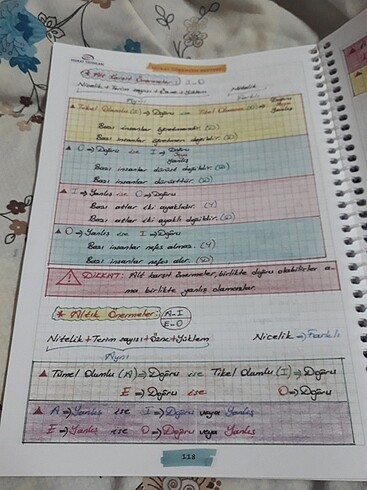 * Alt Karşıt Önermeler: I-O
Nitelik+Terim sayısı+Özne+Yüklem Nicelik
Aynı Farklı
Tikel Olumlu (I) → Doğru ise Tikel Olumsuz (O) → Doğru
Yanlış
Bazı insanlar öğretmendir. (D)
Bazı insanlar öğretmen değildir. (D)
O → Doğru ise I → Doğru
Yanlış
Bazı insanlar dürüst değildir. (D)
Bazı insanlar dürüsttür. (D)
I → Yanlış ise O → Doğru
Bazı atlar iki ayaklıdır. (Y)
Bazı atlar iki ayaklı değildir. (D)
O → Yanlış ise I → Doğru
Bazı insanlar nefes almaz. (Y)
Bazı insanlar nefes alır. (D)
DİKKAT: Alt karşıt önermeler, birlikte doğru olabilirler a-
ma birlikte yanlış olamazlar.
* Altık Önermeler: A-I
E-O
Nitelik+Terim sayısı+Özne+Yüklem Nicelik → Farklı
Aynı
Tümel Olumlu (A) → Doğru ise Tikel Olumlu (I) → Doğru
E → Doğru ise O → Doğru
A → Yanlış ise I → Doğru veya Yanlış
E → Yanlış ise O → Doğru veya Yanlış